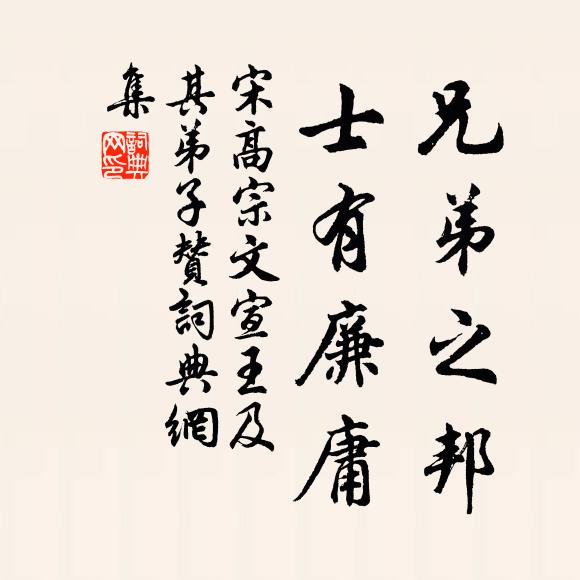 兄弟之邦
士有廉庸
宋高宗文宣王及
其弟子贊詞典網
集
詞典網印